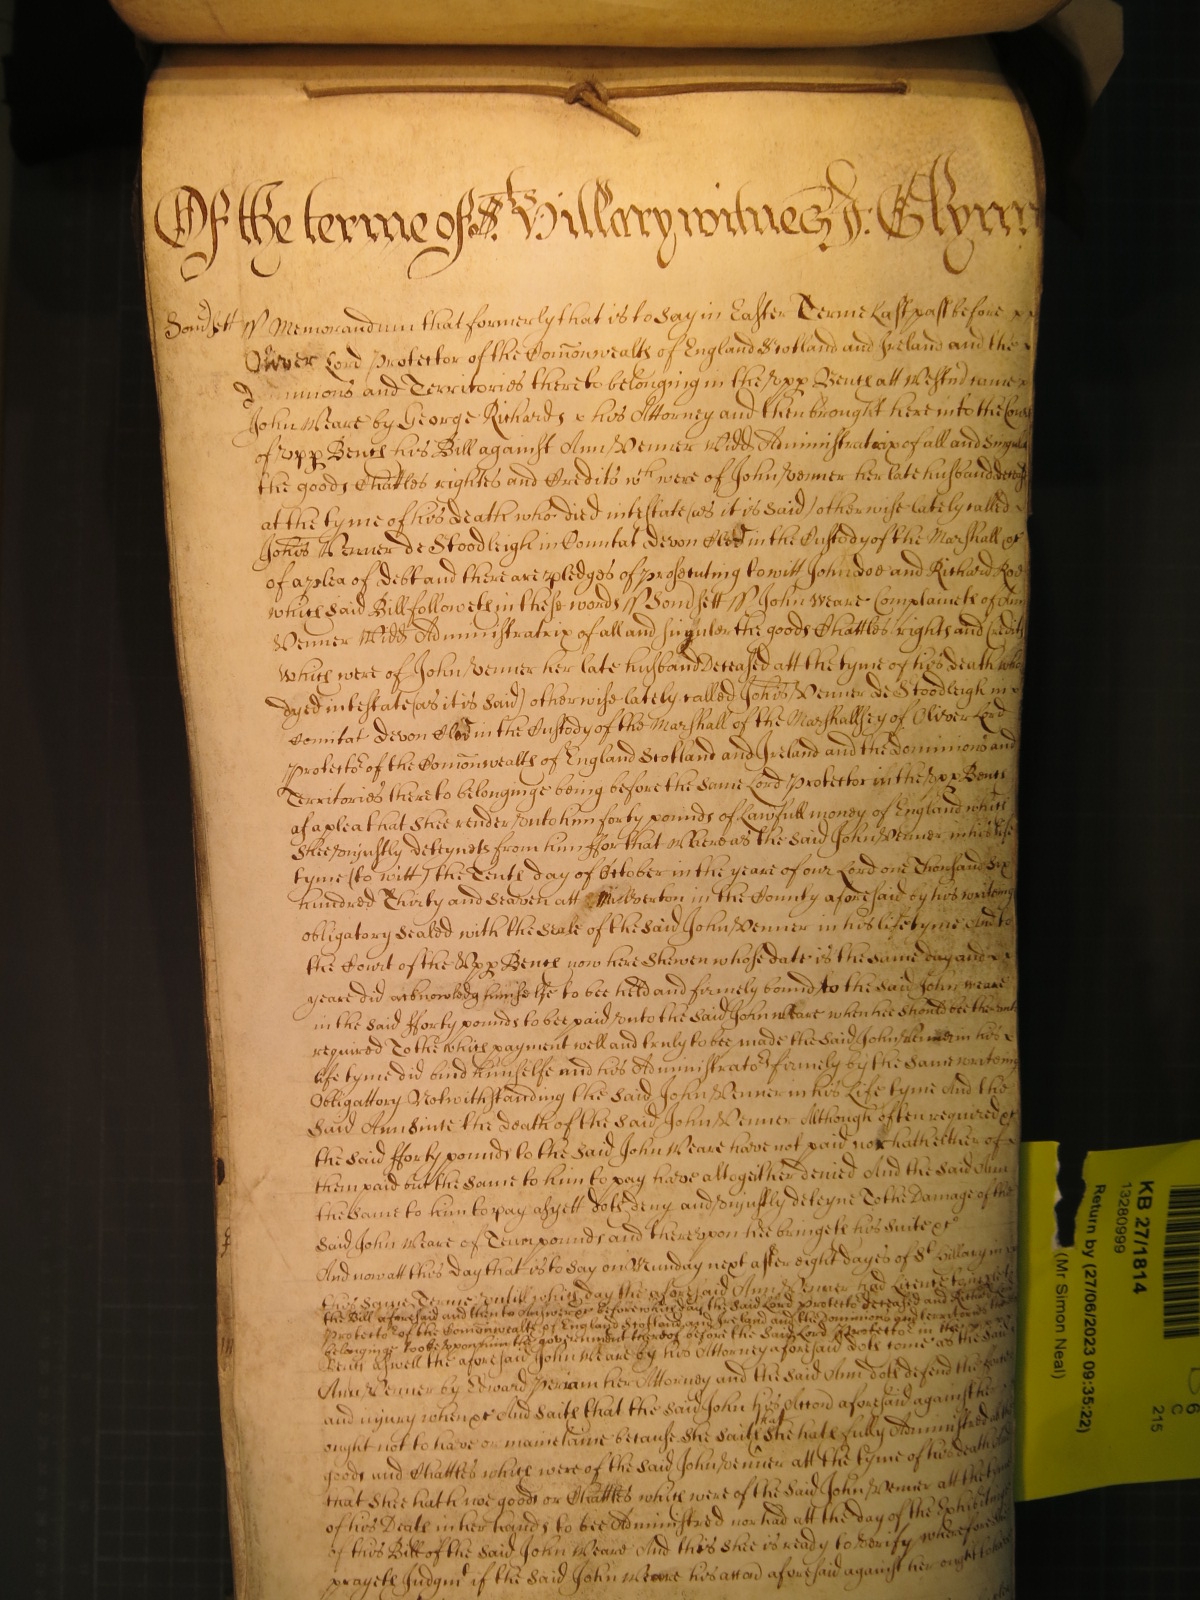 Of the terme of St. Hillary witnes J: Glynn
Somsett ss Memorandum that formerly that is to say in Easter Terme Last past before
Oliver Lord Protector of the Comonwealth of England Scotland and Ireland and the
Dominions and Territories thereto belonging in the upp Bench att Westm came
John Weare by George Richards his Attorney and then brought here into the Court
of upp Bench his Bill against Ann Venner Widd Administratrix of all and singuler
the goods Chattles rightes and Credits wch were of John Venner her late husband deceased
at the tyme of his death who died intestate (as it is said) otherwise lately called
Johis Venner de Stoodleigh in Comitat Devon in the Custody of the Marshall &c
of a plea of debt and there are pledges of prosecuting to witt John doe and Richard Roe
which said Bill followeth in these words ss Somsett ss John Weare Complaineth of Ann
Venner Widd Administratrix of all and singuler the goods Chattles rights and Credits
which were of John Venner her late husband Deceased att the tyme of his death who
dyed intestate (as it is said) otherwise lately called Johis Venner de Stoodleigh in
Comitat Devon in the Custody of the Marshall of the Marshallsey of Oliver Lord
Protector of the Comonwealth of England Scotland and Ireland and the Dominions and
Territories thereto belonginge being before the same Lord Protector in the upp Bench
of a plea that shee render unto him forty pounds of Lawfull money of England which
shee unjustly deteynes from him ffor that Whereas the said John Venner in his life
tyme (to witt) the Tenth day of October in the yeare of our Lord one Thousand Six
hundred Thirty and Seaven att Milverton in the County aforesaid by his writeing
obligatory sealed with the seale of the said John Venner in his life tyme And to
the Court of the Upp Bench now here shewen whose date is the same day and
yeare did acknowledg himselfe to bee held and firmely bound to the said John Weare
in the said fforty pounds to bee paid unto the said John Weare when hee should bee thereunto
required To the which payment well and truly to bee made the said John Venner in his
life tyme did bind himselfe and his Administrators firmely by the same writeing
Obligattory Notwithstanding the said John Venner in his Life tyme And the
said Ann since the death of the said John Venner Although often required &c
the said fforty pounds to the said John Weare have not paid nor hath either of
them paid but the same to him to pay have altogether denied And the said Ann
the same to him to pay as yett doth deny and unjustly deteyne To the Damage of the
said John Weare of Tenn pounds and thereupon hee bringeth his suite &c
And now att this day that is to say on Munday next after eight dayes of St. Hillary in
this same Terme untill which day the aforesaid Ann Venner had Licence to imparle
the Bill aforesaid and then to Answer &c before which day the said Lord Protector deceased and Richard
Protector of the Comonwealth of England Scotland and Ireland and the Dominions and territories thereto
belonginge tooke upon him the government thereof before the said Lord Protector in the upp
Bench aswell the aforesaid John Weare by his Attorney aforesaid doth come as the said
Ann Venner by Edward Periam her Attorney and the said Ann doth defend the force
and injury when &c And saith that the said John his Accon aforesaid against her
ought not to have or maineteine because she saith that she hath fully Administred all the
goods and Chattles which were of the said John Venner att the tyme of his death And
that shee hath noe goods or Chattles which were of the said John Venner att the tyme
of his Death in her hands to bee Administred nor had att the day of the Exhibiting
of this Bill of the said John Weare And this shee is ready to verify wherefore shee
prayeth Judgmt if the said John Weare his accon aforesaid against her ought to have
KB 27/1814
13280999
Return by (27/06/2023 09:35:22)
(Mr Simon Neal)
C
215